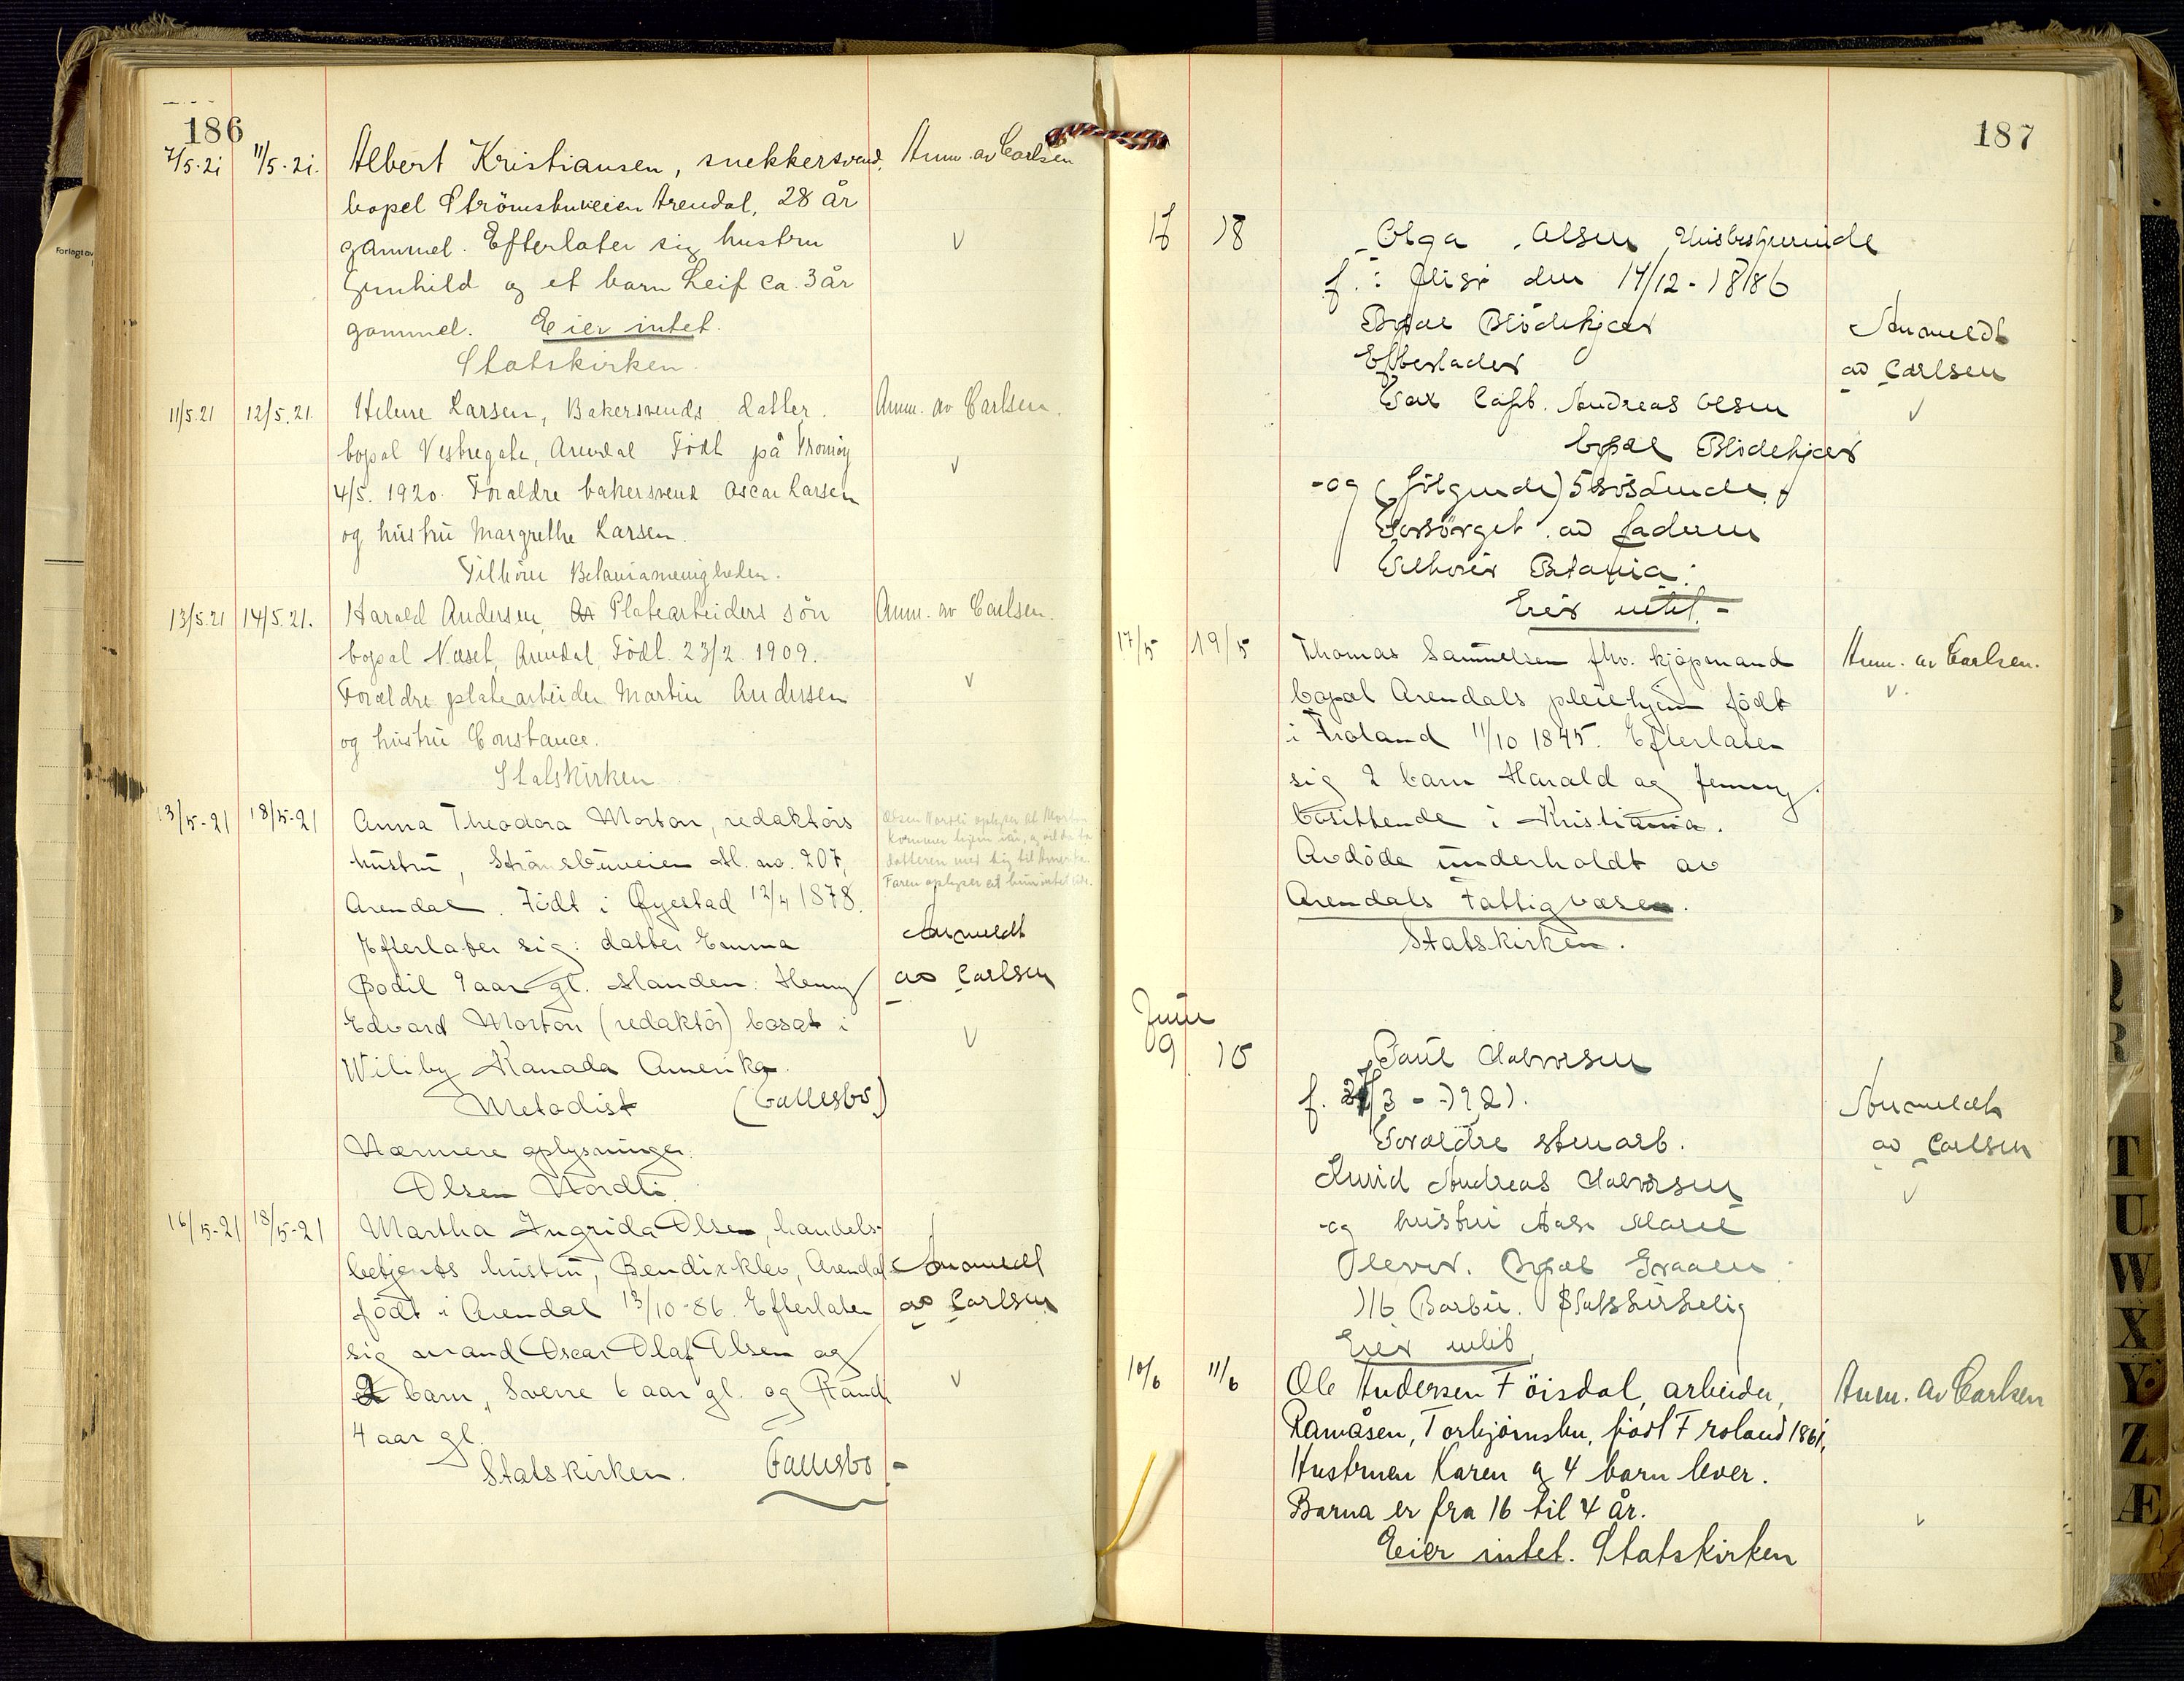 186
7/5-21 11/5-21. Albert Kristiansen, snekkersvend. Anm. av Carlsen
bopel Strömsbuveien Arendal, 28 år
gammel. Efterlater sig hustru
Gunhild og et barn Leif ca. 3 år
gammel. Eier intet.
Statskirken.
11/5.21 12/5.21. Helene Larsen, Bakersvends datter. Anm. av Carlsen.
bopæl Vestregate, Arendal Født på Tromöy
4/5. 1920. Foraldre bakersvend Oscar Larsen
og hustru Margrethe Larsen.
Tilhörer Betaniamenigheden.
13/5.21 14/5.21. Harald Andersen, Platearbeiders sön Anm. av Carlsen.
bopæl Næset, Arendal, Födt. 23/2. 1909.
Forældre platearbeider Martin Andersen
og hustru Constance.
Statskirken
13/5-21 18/5-21 Anna Theodora Morton, redaktörs
hustru, Strömsbuveien M. no. 207,
Arendal. Födt i Øyestad 12/4 1878.
Olsen Nordli oplyser at Morton
kommer hjem
datteren med sig til Amerika.
Faren oplyser at hun intet
Efterlater sig: datter Emma
Bodil 9 aar gl. Manden: Henry
Edvard Morton (redaktör) bosat i
Wiliby Kanada Amerika.
Anmeldt
av Carlsen
Metodist (Fællesbo)
Nærmere oplysninger:
Olsen Nordli.
16/5-21 18/5-21 Martha Ingrida Olsen, handels-
betjents hustru, Bendixklev, Arendal Anmeldt
födt i Arendal 13/10-86. Efterlater av Carlsen
sig mand Oscar Olaf Olsen og
2 barn, Sverre 6 aar gl. og Rand
4 aar gl.
Statskirken. Fællesbo -
187
17 18 Olga Olsen Husbestyrerinde
f. i den 14/12-1886
Bopæl Blödekjær Anmeldt
Efterlader av Carlsen
Far Capt. Andreas Olsen
bopæl Blödekjær
-og (fölgende) 5 sösdende
Forsörget av faderen
Tilhörer Betania.
Eier intet. -
17/5 19/5 Thomas Samuelsen fhv. kjöpmand Anm. av Carlsen.
bopæl Arendals pleiehjem födt
i Froland 11/10 1845. Efterlater
sig 2 barn Harald og Jenny
bosittende i Kristiania.
Avdöde underholdt av
Arendals Fattigvæsen.
Statskirken.
Juni
9 10 Paul Halvorsen
f. /3 - 1921. Anmeldt
Forældre stenarb. av Carlsen
Knud Andreas Halvorsen
-og hustru Aase Marie
Bopæl
116 Barbu. Statskirkelig
Eier intet.
10/6 11/6 Ole Andersen Föisdal, arbeider, Anm. av Carlsen
Ramåsen, Torbjörnsbu, födt Froland 1861,
Hustruen Karen og 4 barn lever.
Barna er fra 16 til 4 år.
Eier intet. Statskirken
T
U
W
X
Y
Z
Æ